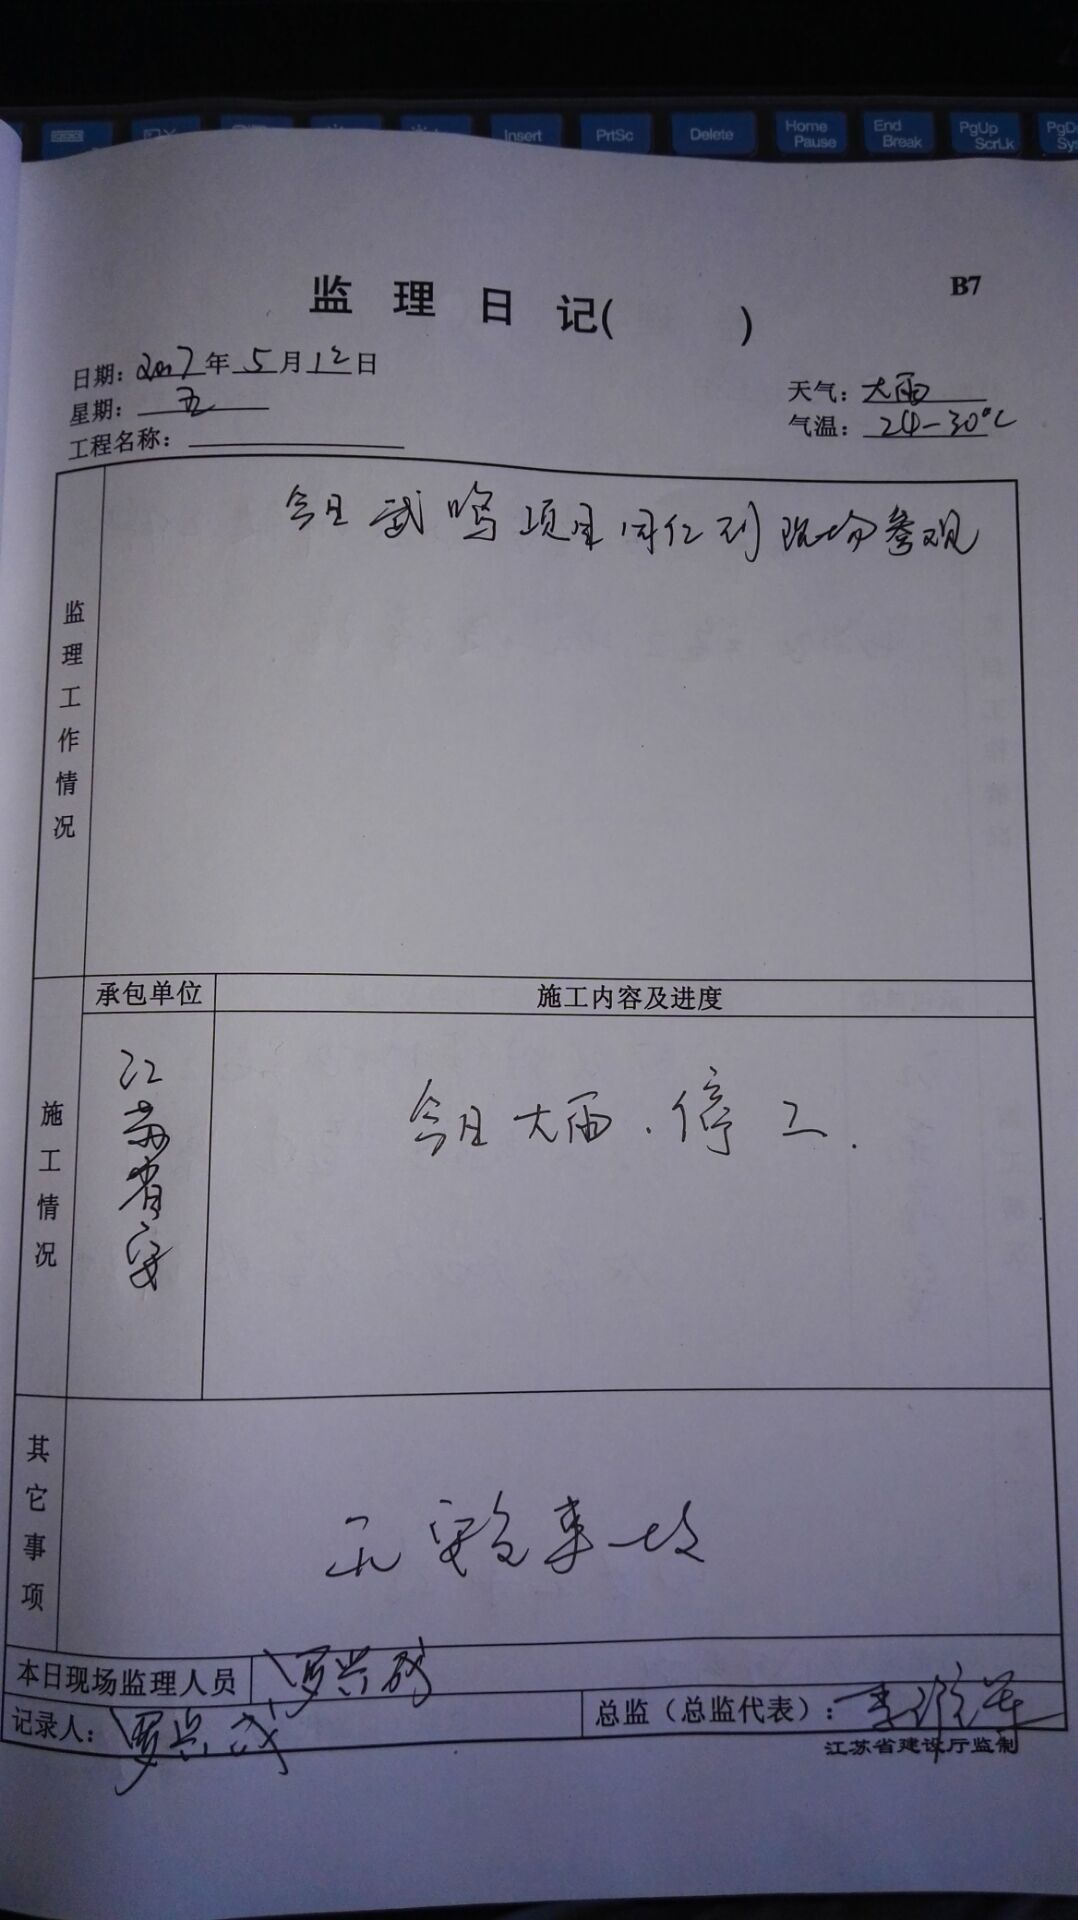 Insert
PrtSc
Delete
Home
Pause
End
Break
PgUp
ScrLk
B7
监理日记( )
日期：2017年5月12日
天气：大雨
星期：五
气温：24-30℃
工程名称：
监理工作情况
今日武鸣项目同仁到现场参观
承包单位
施工内容及进度
施工情况
江苏省安
今日大雨、停工.
其它事项
无安全事故
本日现场监理人员
罗兴成
记录人：罗兴成
总监（总监代表）：
江苏省建设厅监制